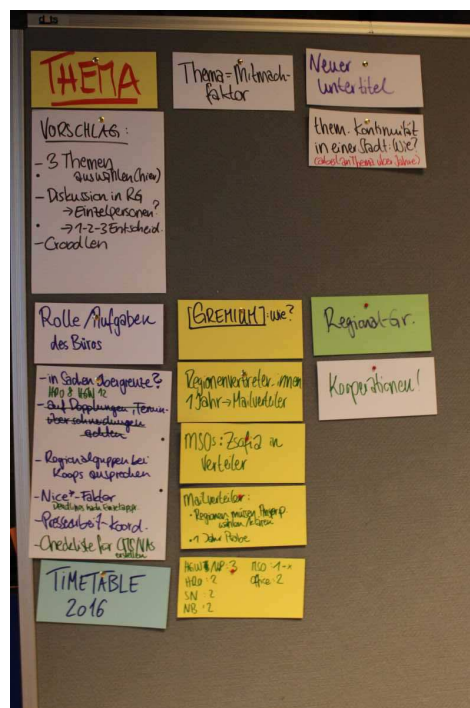 THEMA
VORSCHLAG:
- 3 Themen
auswählen (hier)
- Diskussion in RG
→ Einzelpersonen?
→ 1-2-3 Entscheid.
- Croodlen
Thema = Mitmach-
faktor
Neuer
Untertitel
them. Kontinuität
in einer Stadt: Wie?
Thema über Jahre?)
Rolle/Aufgaben
des Büros
- in Sachen Übergreute?
HRO & HGW 12
- auf Dopplungen, Termin-
überschneidungen
achten
- Regionalgruppen bei
Koops ansprechen
- Nice*-Faktor
- Pressearbeit-Koord.
- Checkliste for
erstellen
TIMETABLE
2016
[GREMIUM]: wie?
Regionenvertreter
1 Jahr → Mailverteiler
MSOs: Zsofia in
Verteiler
Mailverteiler:
• Regionen müssen
wählen
• 1 Jahr Probe
HGW : 3
HRO : 2
SN : 2
NB : 2
MSO : 1-x
Office : 2
Regional-Gr.
Kooperationen!